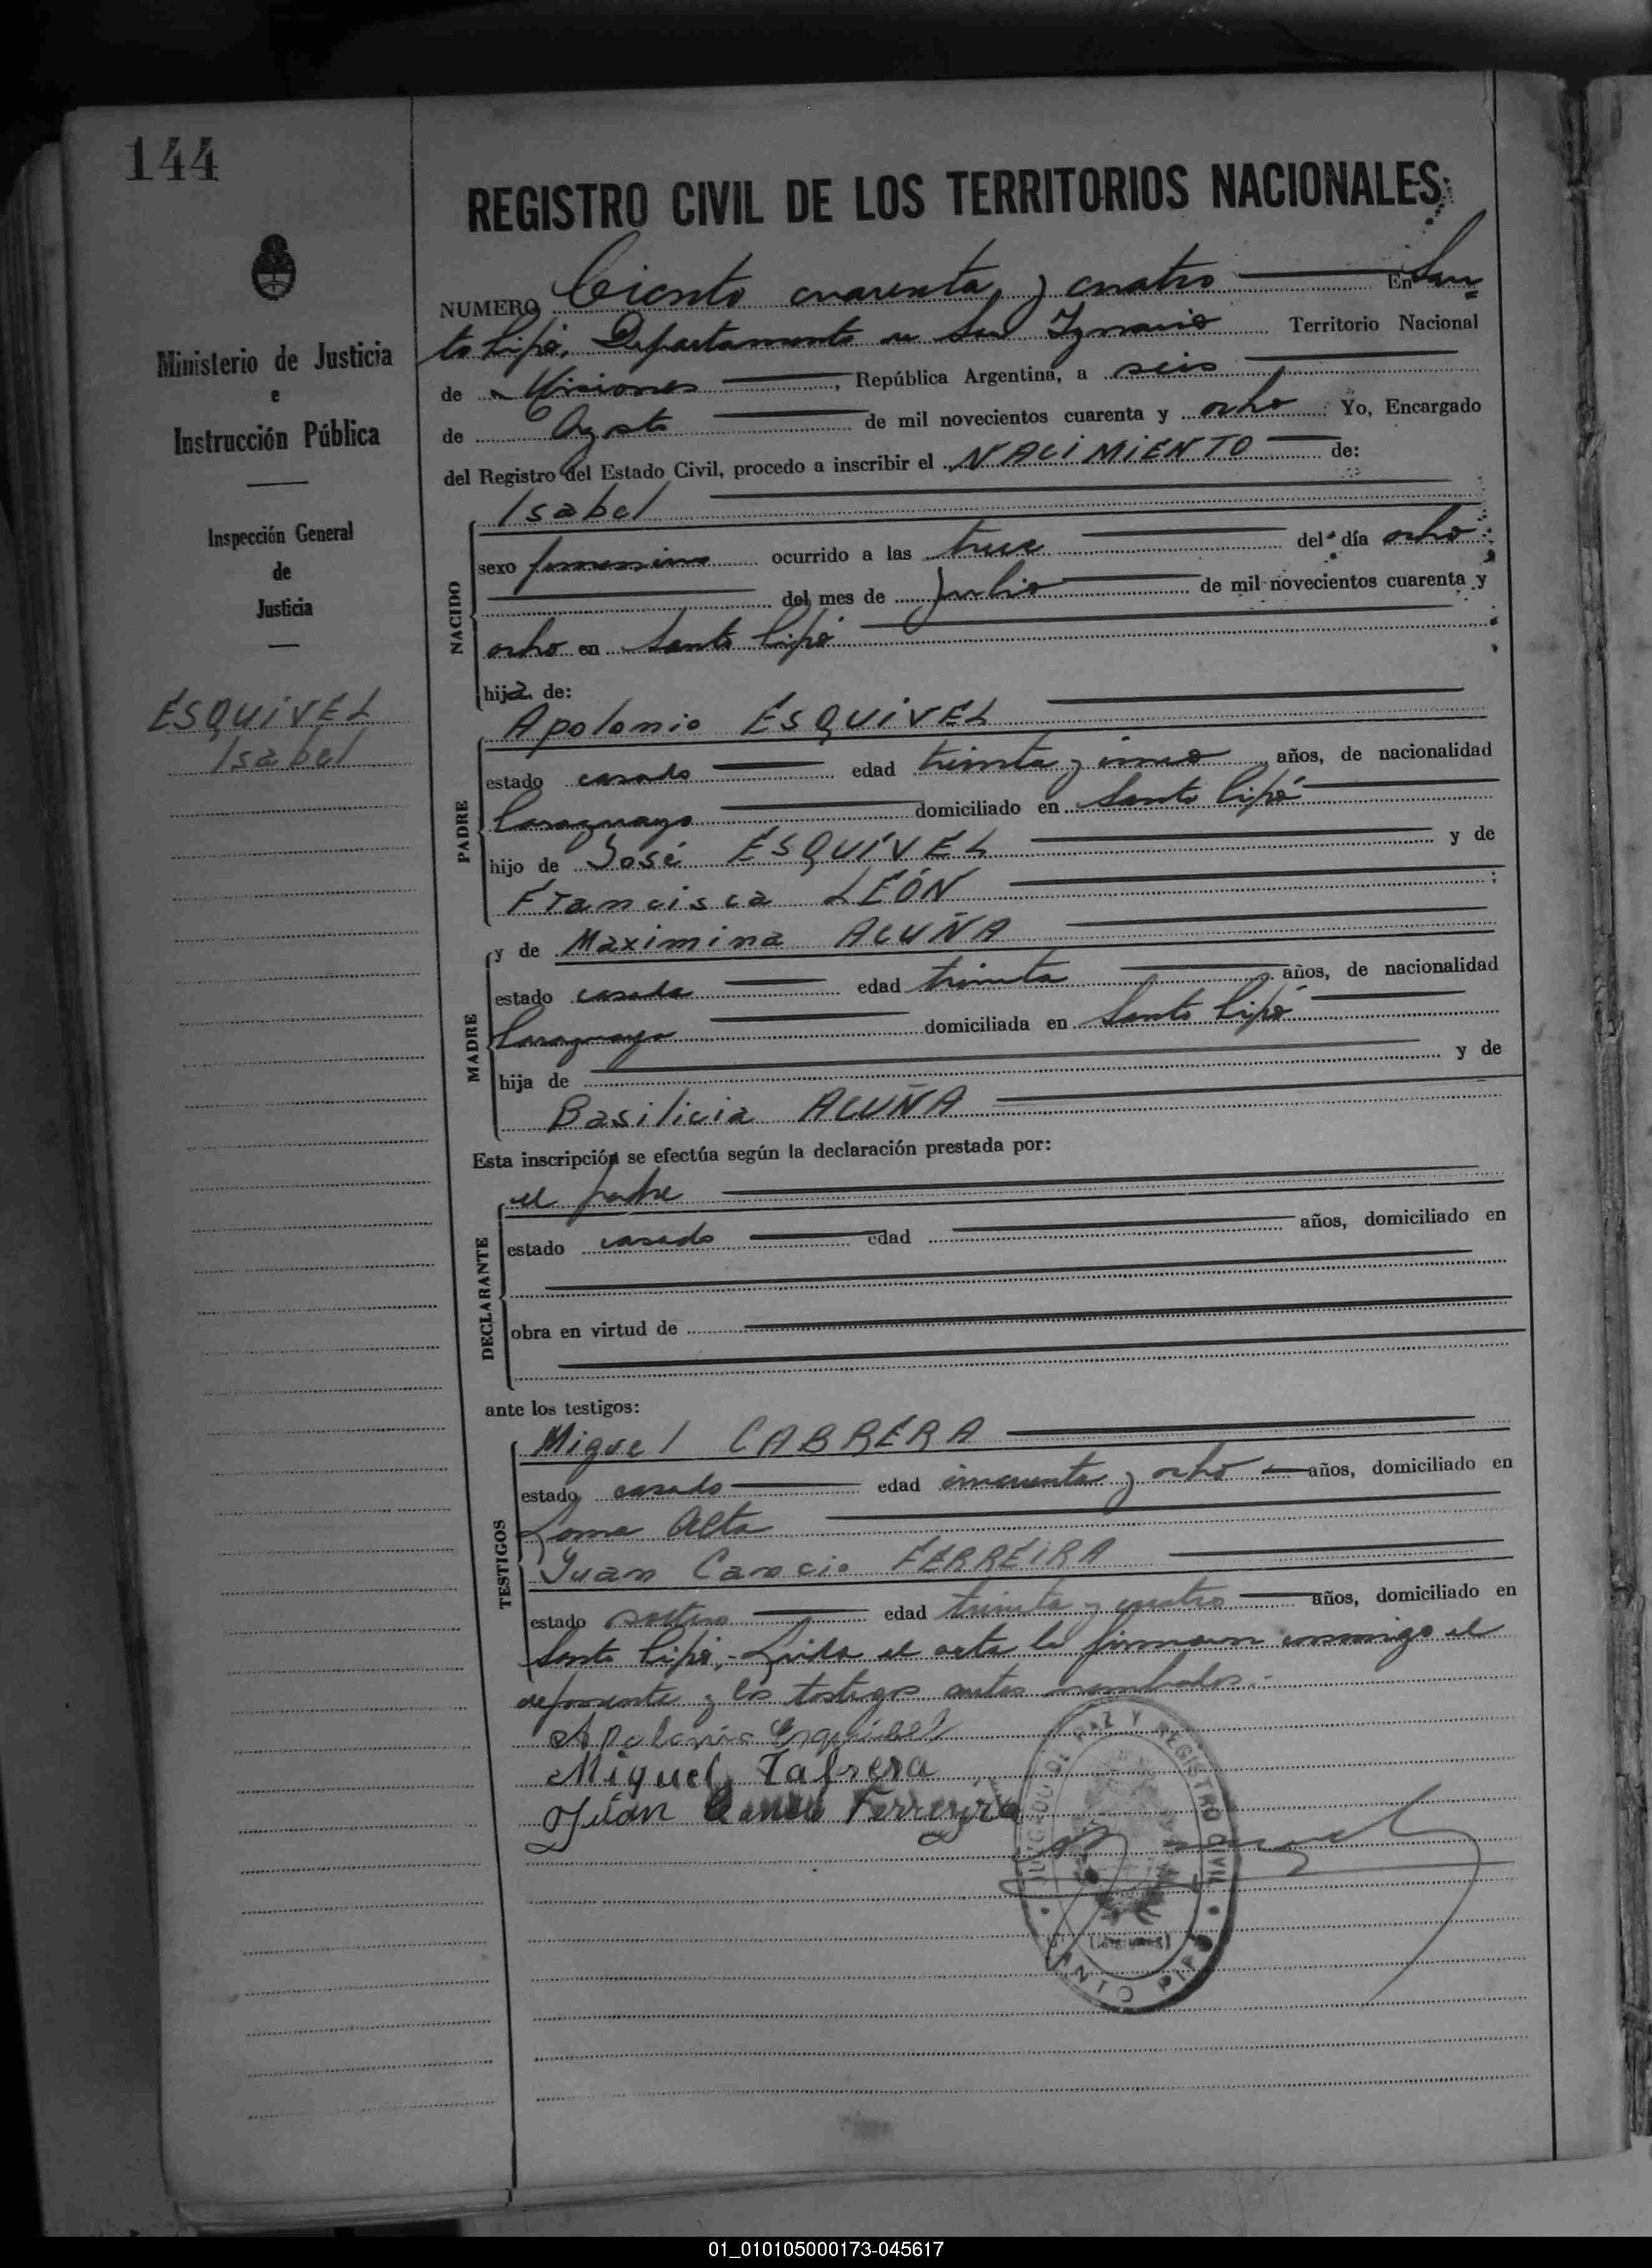 144
REGISTRO CIVIL DE LOS TERRITORIOS NACIONALES
NUMERO Ciento cuarenta y cuatro En San-
to Pipó, Departamento de San Ignacio Territorio Nacional
Ministerio de Justicia
e
Instrucción Pública
de Misiones, República Argentina, a seis
de Agosto de mil novecientos cuarenta y ocho Yo, Encargado
del Registro del Estado Civil, procedo a inscribir el NACIMIENTO de:
Inspección General
de
Justicia
NACIDO
Isabel
sexo femenino ocurrido a las trece del día ocho
del mes de Julio de mil novecientos cuarenta y
ocho en Santo Pipó
hija de:
ESQUIVEL
Isabel
PADRE
Apolonio ESQUIVEL
estado casado edad treinta y cinco años, de nacionalidad
Paraguayo domiciliado en Santo Pipó
hijo de José ESQUIVEL y de
Francisca LEÓN
MADRE
y de Maximina ACUÑA
estado casada edad treinta años, de nacionalidad
Paraguaya domiciliada en Santo Pipó
hija de y de
Basilicia ACUÑA
Esta inscripción se efectúa según la declaración prestada por:
DECLARANTE
el padre
estado casado edad años, domiciliado en
obra en virtud de
ante los testigos:
TESTIGOS
Miguel CABRERA
estado casado edad cincuenta y ocho años, domiciliado en
Loma Alta
Juan Cancio FERREIRA
estado soltero edad treinta y cuatro años, domiciliado en
Santo Pipó.- Leida el acta la firman conmigo el
deponente y los testigos antes nombrados.-
Apolonio Esquibel
Miguel Cabrera
Juan Ferreyra
JUZGADO DE PAZ Y REGISTRO CIVIL
SANTO PIPÓ
01_010105000173-045617